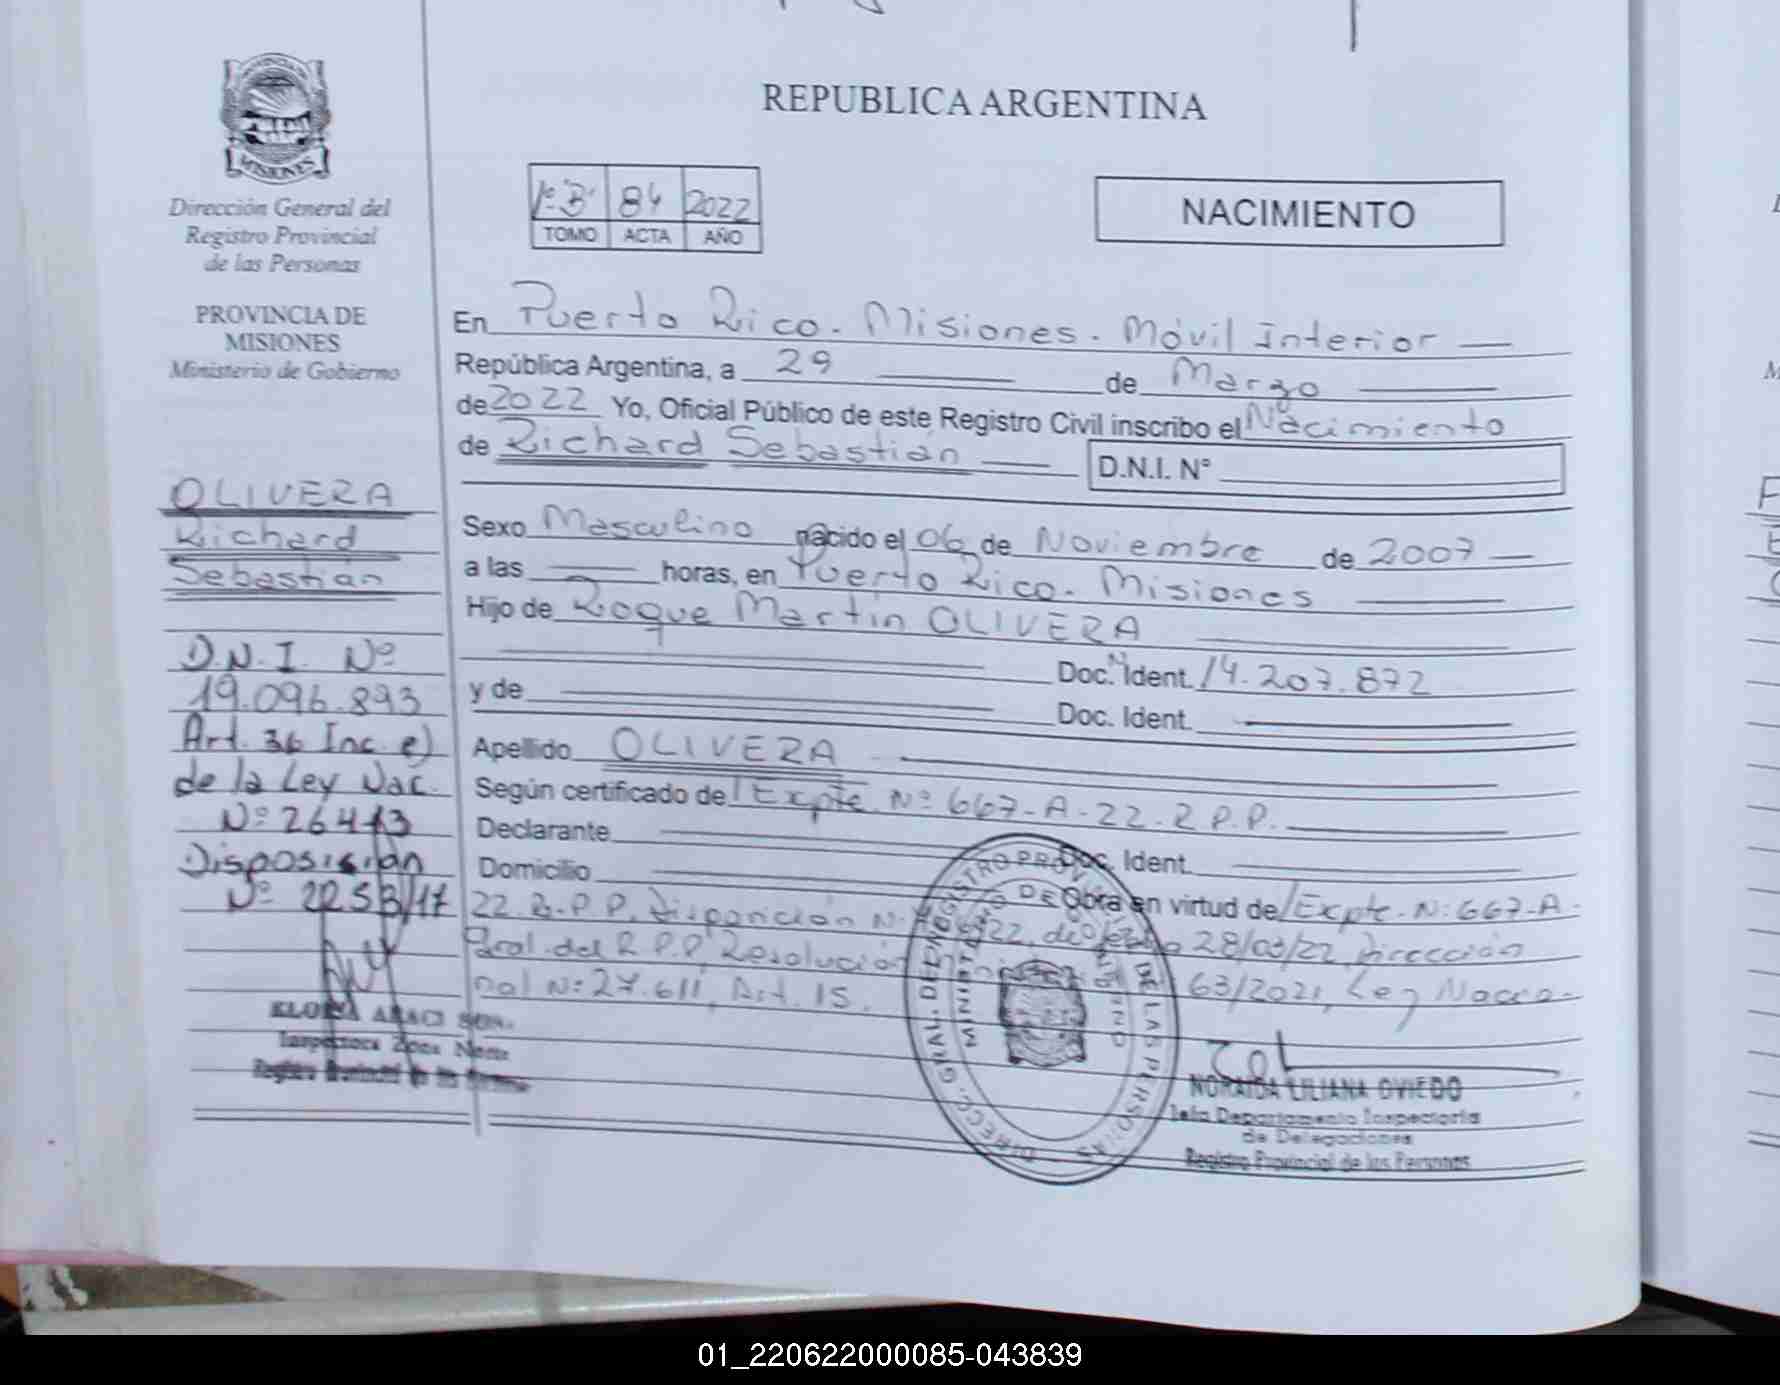 REPUBLICA ARGENTINA
MISIONES
Dirección General del
Registro Provincial
de las Personas
PROVINCIA DE
MISIONES
Ministerio de Gobierno
1º "B" 84 2022
TOMO ACTA AÑO
NACIMIENTO
En Puerto Rico. Misiones. Móvil Interior
República Argentina, a 29 de Marzo
de 2022 Yo, Oficial Público de este Registro Civil inscribo el Nacimiento
de Richard Sebastián D.N.I. N°
OLIVERA
Richard
Sebastián
D.N.I. Nº
19.096.893
Art. 36 Inc. e)
de la Ley Nac.
Nº 26413
Disposición
Nº 2253/17
Sexo Masculino nacido el 06 de Noviembre de 2007
a las horas, en Puerto Rico. Misiones
Hijo de Roque Martín OLIVERA
Doc. Ident. 14.207.872
y de Doc. Ident.
Apellido OLIVERA
Según certificado de Expte Nº 667-A-22-R.P.P.
Declarante Doc. Ident.
Domicilio Obra en virtud de Expte. Nº 667-A-
22. R.P.P. Disposición 28/03/22, Dirección
Gral. del R.P.P. Resolución 63/2021, Ley Nacio-
nal Nº 27.611, Art. 15.
Inspectora Zona Norte
NORAIDA LILIANA OVIEDO
Jefa Departamento Inspectoria
de Delegaciones
Registro Provincial de las Personas
01_220622000085-043839